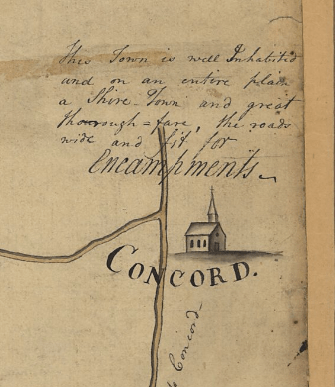 This Town is well Inhabited
and on an entire plain
a Shire-Town and great
thorough=fare, the roads
wide and fit for
Encampments.
CONCORD.
Concord